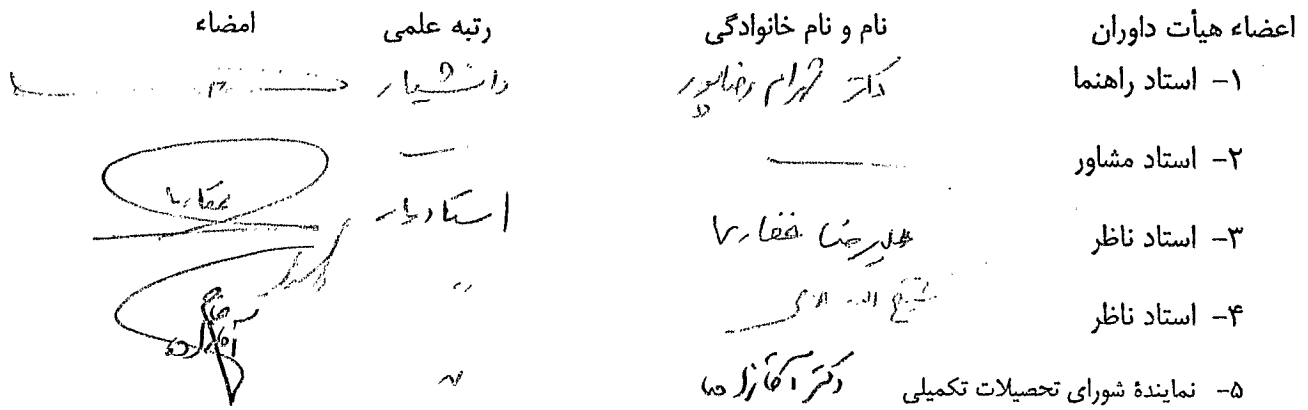 اعضاء هیأت داوران نام و نام خانوادگی رتبه علمی امضاء
۱- استاد راهنما دکتر شهرام رضاپور دانشیار
۲- استاد مشاور
۳- استاد ناظر علیرضا غفاری استادیار
۴- استاد ناظر "
۵- نمایندۀ شورای تحصیلات تکمیلی دکتر آقازاده "